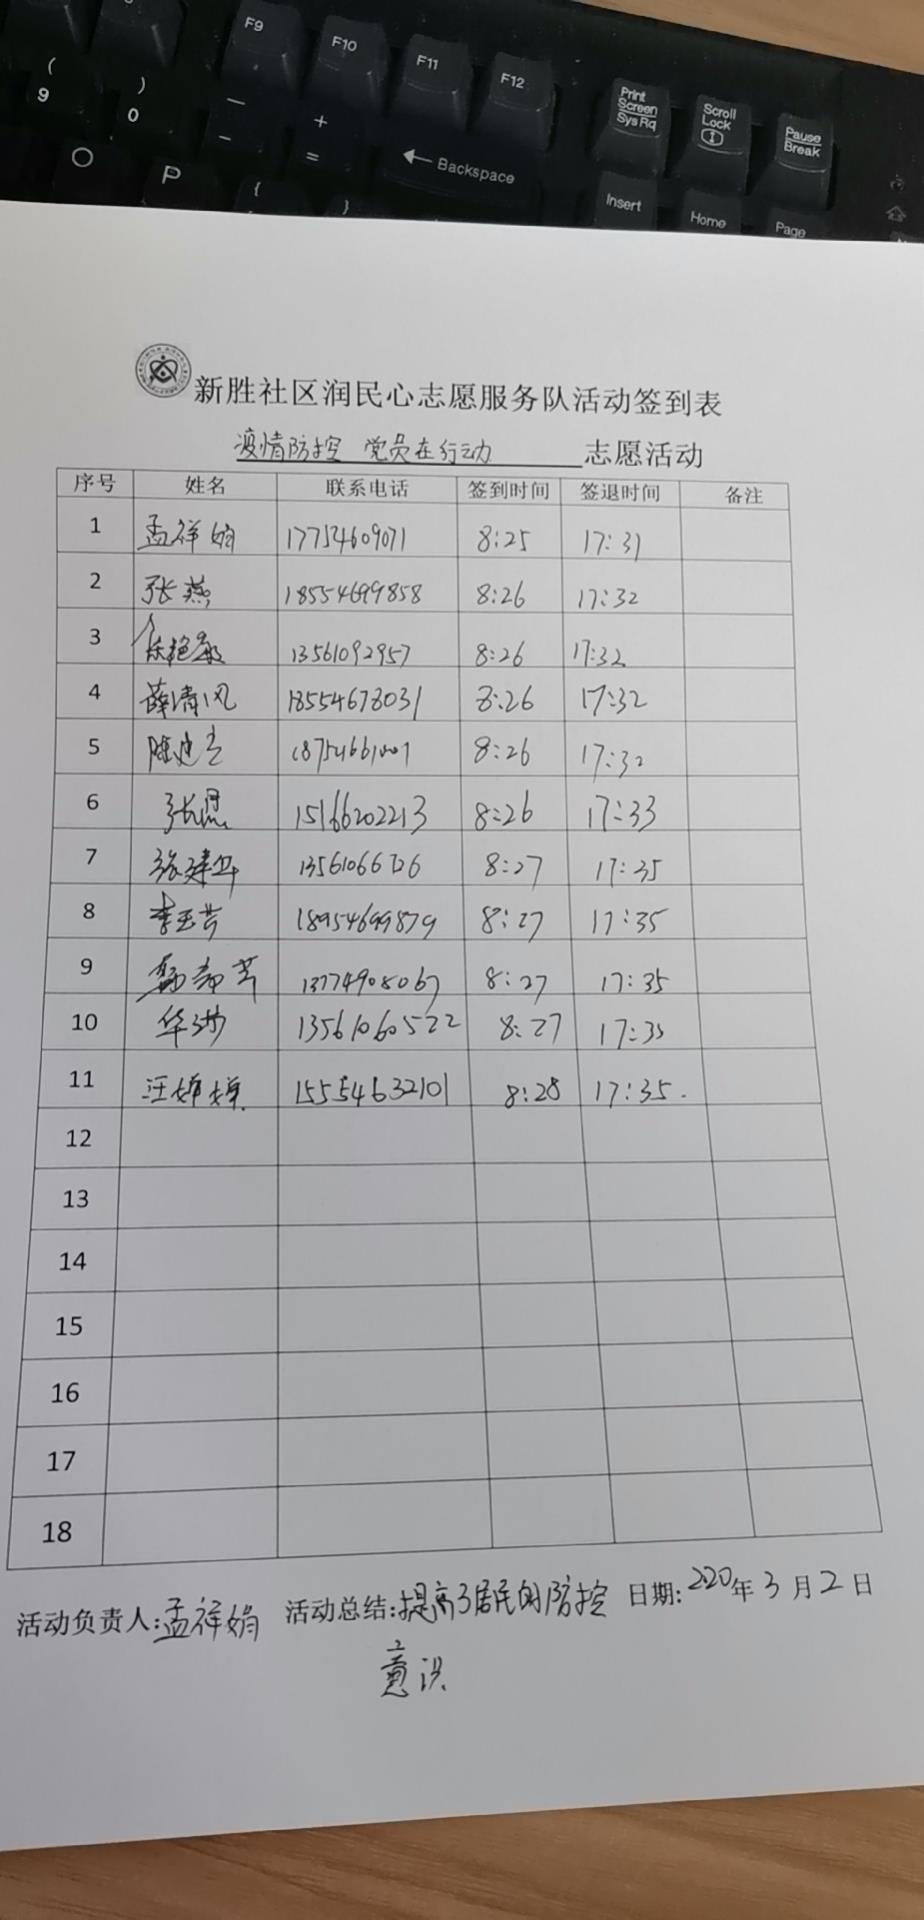 F9 F10 F11 F12 Print Screen SysRq Scroll Lock Pause Break
( 9 ) 0 — - + = ← Backspace
O P { } Insert Home Page
新胜社区润民心志愿服务队活动签到表
疫情防控 党员在行动 志愿活动
序号 姓名 联系电话 签到时间 签退时间 备注
1 孟祥娟 17754609071 8:25 17:31
2 张燕 18554699858 8:26 17:32
3 13561092957 8:26 17:32
4 薛清风 18554673031 8:26 17:32
5 8:26 17:32
6 15166202213 8:26 17:33
7 张建华 13561066726 8:27 17:35
8 李玉芳 18954699879 8:27 17:35
9 13774908067 8:27 17:35
10 13561060522 8:27 17:35
11 汪婵婵 15554632101 8:28 17:35.
12
13
14
15
16
17
18
活动负责人:孟祥娟 活动总结:提高了居民的防控 日期:2220年3月2日
意识